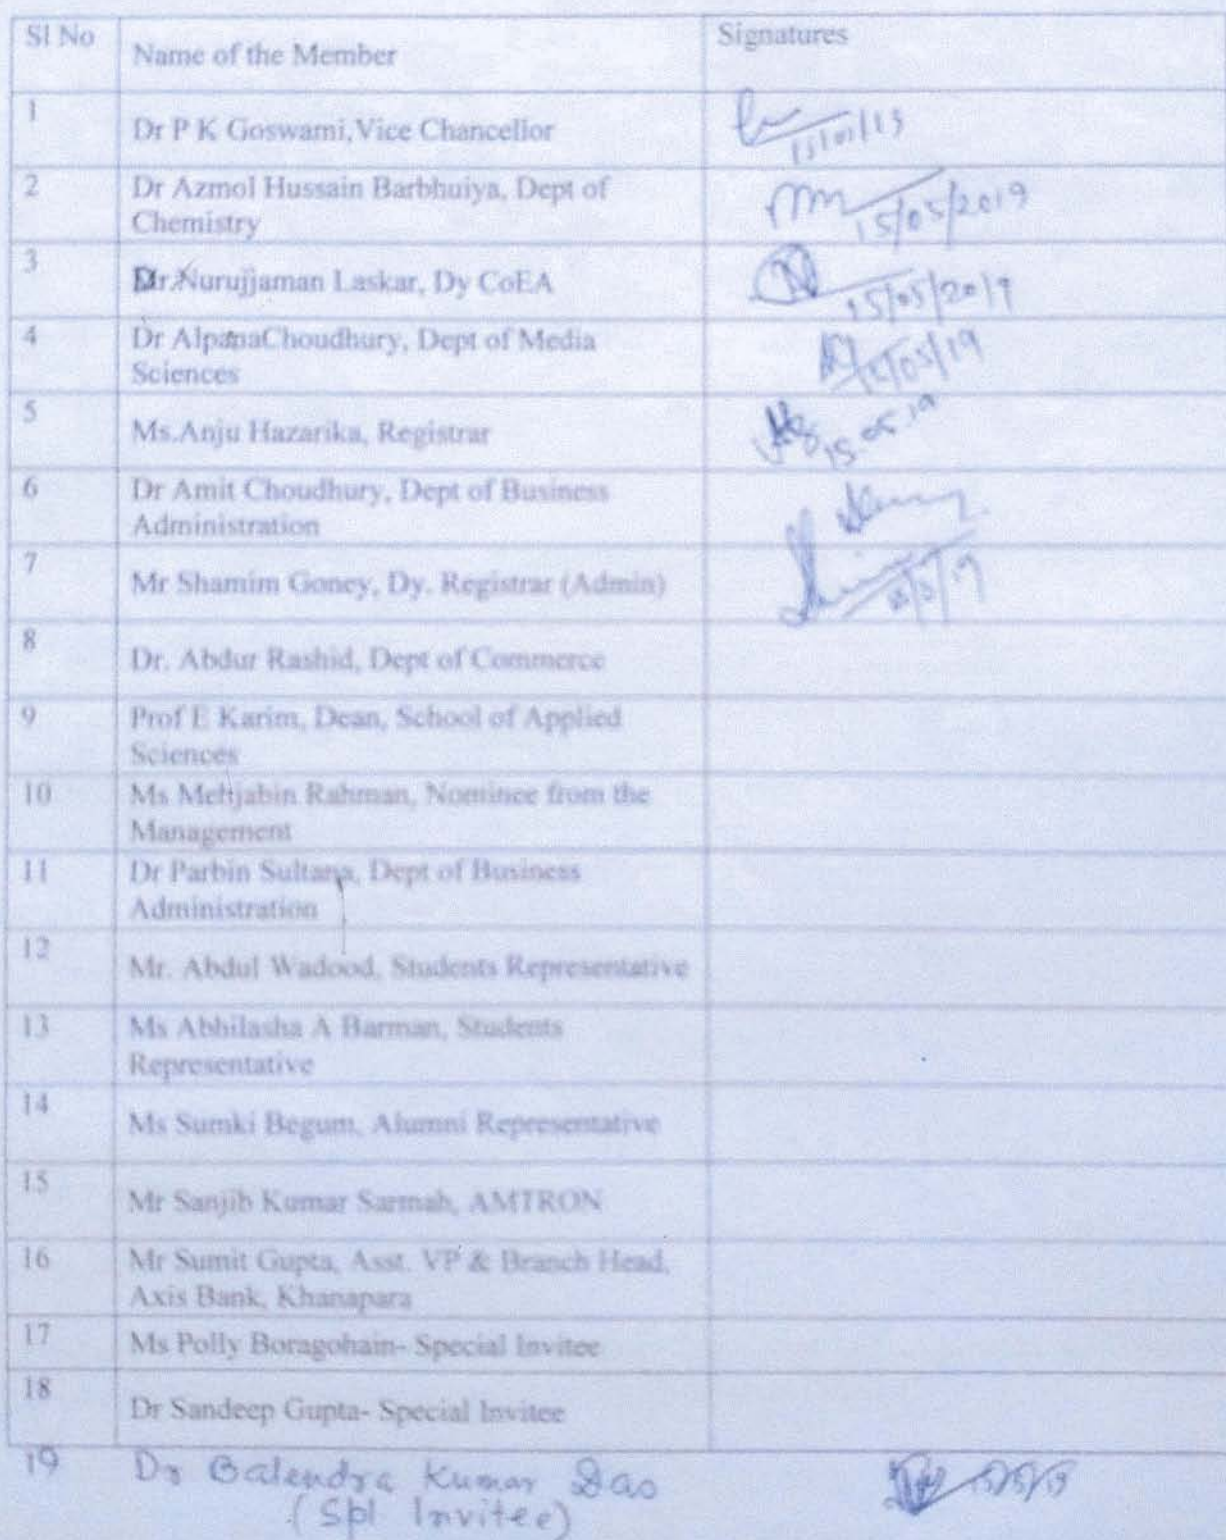 Sl No Name of the Member Signatures
1 Dr P K Goswami,Vice Chancellor
2 Dr Azmol Hussain Barbhuiya, Dept of
Chemistry 15/05/2019
3 Nurujjaman Laskar, Dy CoEA 15/05/2019
4 Dr AlpanaChoudhury, Dept of Media
Sciences /05/19
5 Ms.Anju Hazarika, Registrar 15.05.19
6 Dr Amit Choudhury, Dept of Business
Administration
7 Mr Shamim Goney, Dy. Registrar (Admin)
8 Dr. Abdur Rashid, Dept of Commerce
9 Prof E Karim, Dean, School of Applied
Sciences
10 Ms Mehjabin Rahman, Nominee from the
Management
11 Dr Parbin Sultana, Dept of Business
Administration
12 Mr. Abdul Wadood, Students Representative
13 Ms Abhilasha A Barman, Students
Representative
14 Ms Sumki Begum, Alumni Representative
15 Mr Sanjib Kumar Sarmah, AMTRON
16 Mr Sumit Gupta, Asst. VP & Branch Head,
Axis Bank, Khanapara
17 Ms Polly Boragohain- Special Invitee
18 Dr Sandeep Gupta- Special Invitee
19 Dr Balendra Kumar Das
(Spl Invitee)